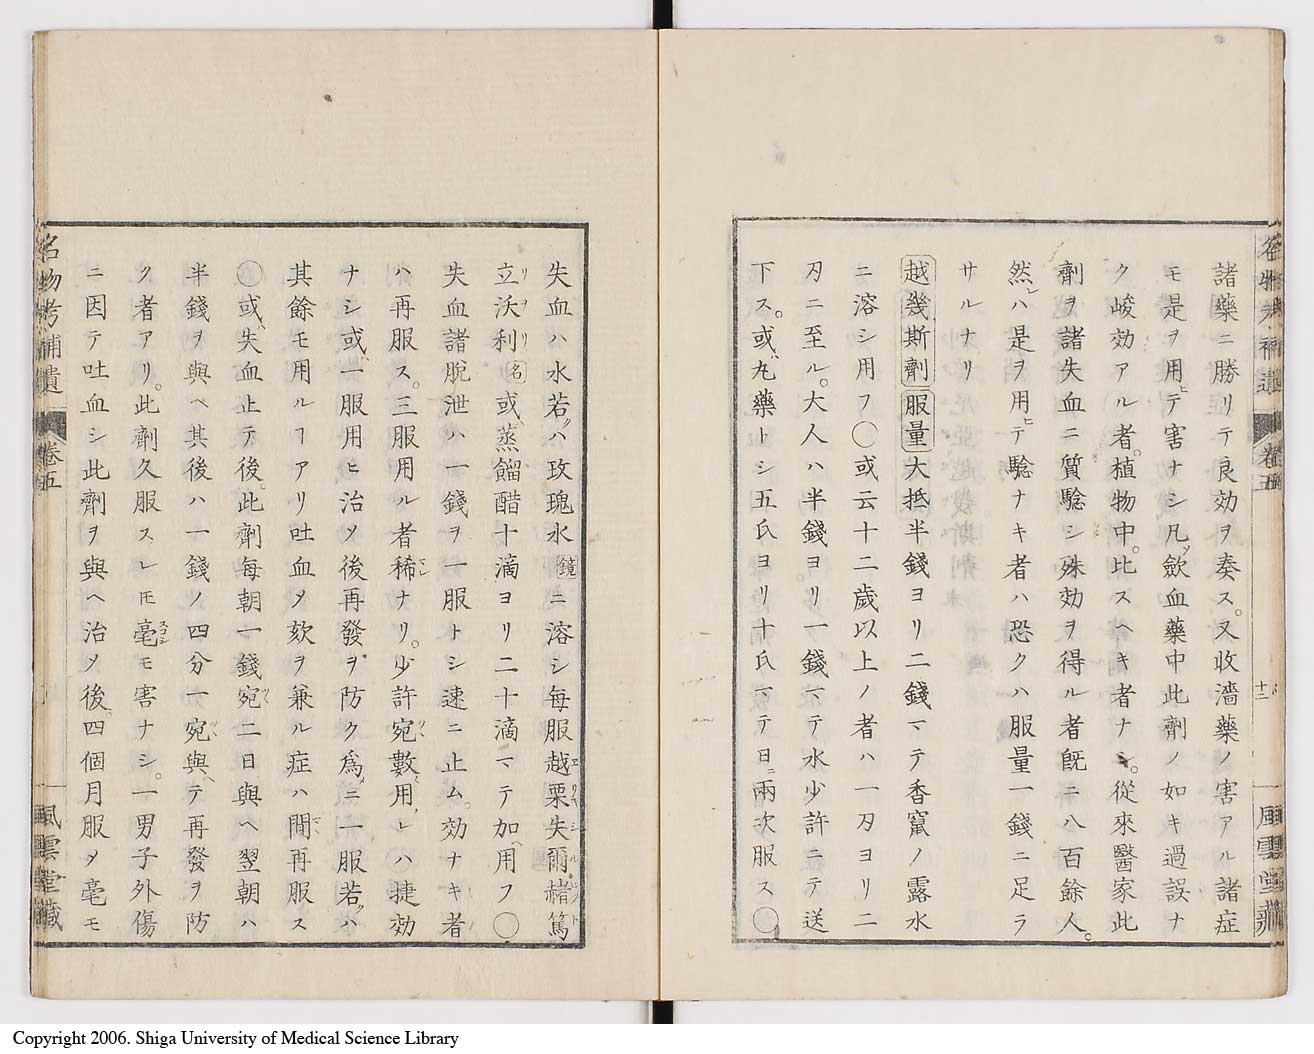 諸藥ニ勝リテ良効ヲ奏ス。又收濇藥ノ害アル諸症
モ是ヲ用ヒテ害ナシ凡ソ歛血藥中此劑ノ如キ過誤ナ
ク峻効アル者。植物中。比スヘキ者ナシ。從來醫家此
劑ヲ諸失血ニ質騐シ殊効ヲ得ル者既ニ八百餘人。
然レハ是ヲ用ヒテ騐ナキ者ハ恐クハ服量一錢ニ足ラ
サルナリ
越幾斯劑 服量 大抵半錢ヨリ二錢マテ香竄ノ露水
ニ溶シ用フ○或云十二歳以上ノ者ハ一刃ヨリ二
刃ニ至ル。大人ハ半錢ヨリ一錢マテ水少許ニテ送
下ス。或ハ丸藥トシ五氏ヨリ十氏マテ日ニ兩次服ス○
名物考補遺 卷五 十二 風雲堂藏
失血ハ水若クハ玫瑰水鏡ニ溶シ毎服越栗失爾赭篤
立沃利名或ハ蒸餾醋十滴ヨリ二十滴マテ加ヘ用フ○
失血諸脫泄ハ一錢ヲ一服トシ速ニ止ム。効ナキ者
ハ再服ス。三服用ル者稀ナリ。少許宛數〻用レハ捷効
ナシ或ハ一服用ヒ治メ後再發ヲ防ク爲メニ一服若クハ
其餘モ用ルヿアリ吐血メ欬ヲ兼ル症ハ間〻再服ス
○或ハ失血止テ後。此劑毎朝一錢宛二日與ヘ翌朝ハ
半錢ヲ與ヘ其後ハ一錢ノ四分一宛與ヘテ再發ヲ防
ク者アリ。此劑久服スレモ毫モ害ナシ。一男子外傷
ニ因テ吐血シ此劑ヲ與ヘ治メ後四個月服タ毫モ
名物考補遺 卷五 風雲堂藏
Copyright 2006. Shiga University of Medical Science Library